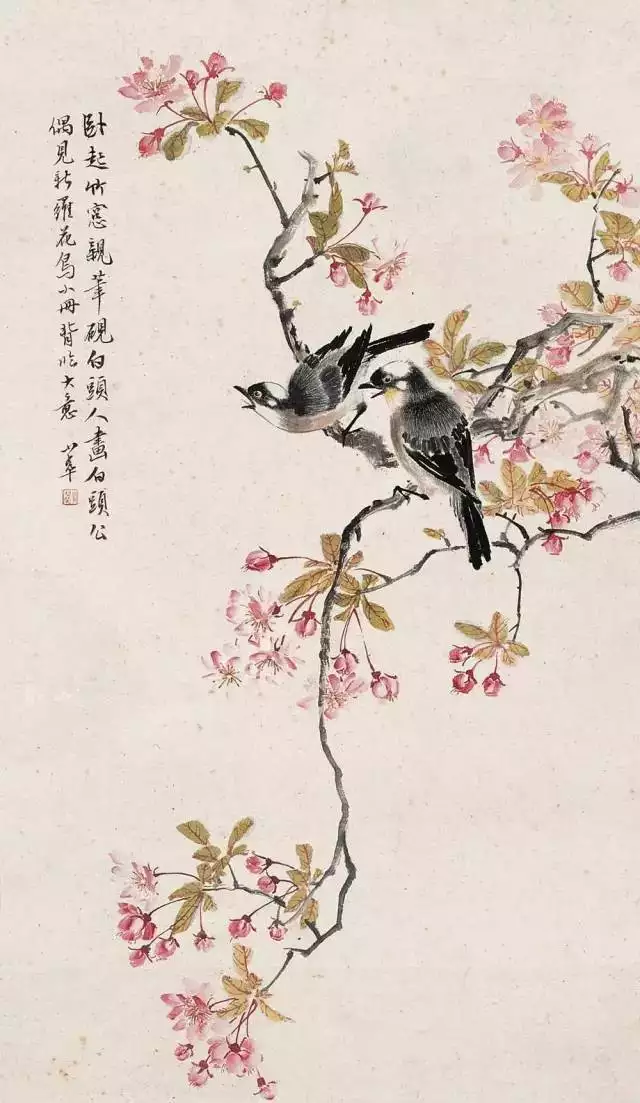 臥起竹窓親筆硯白頭人畫白頭公
偶見新羅花鳥小冊背臨大意